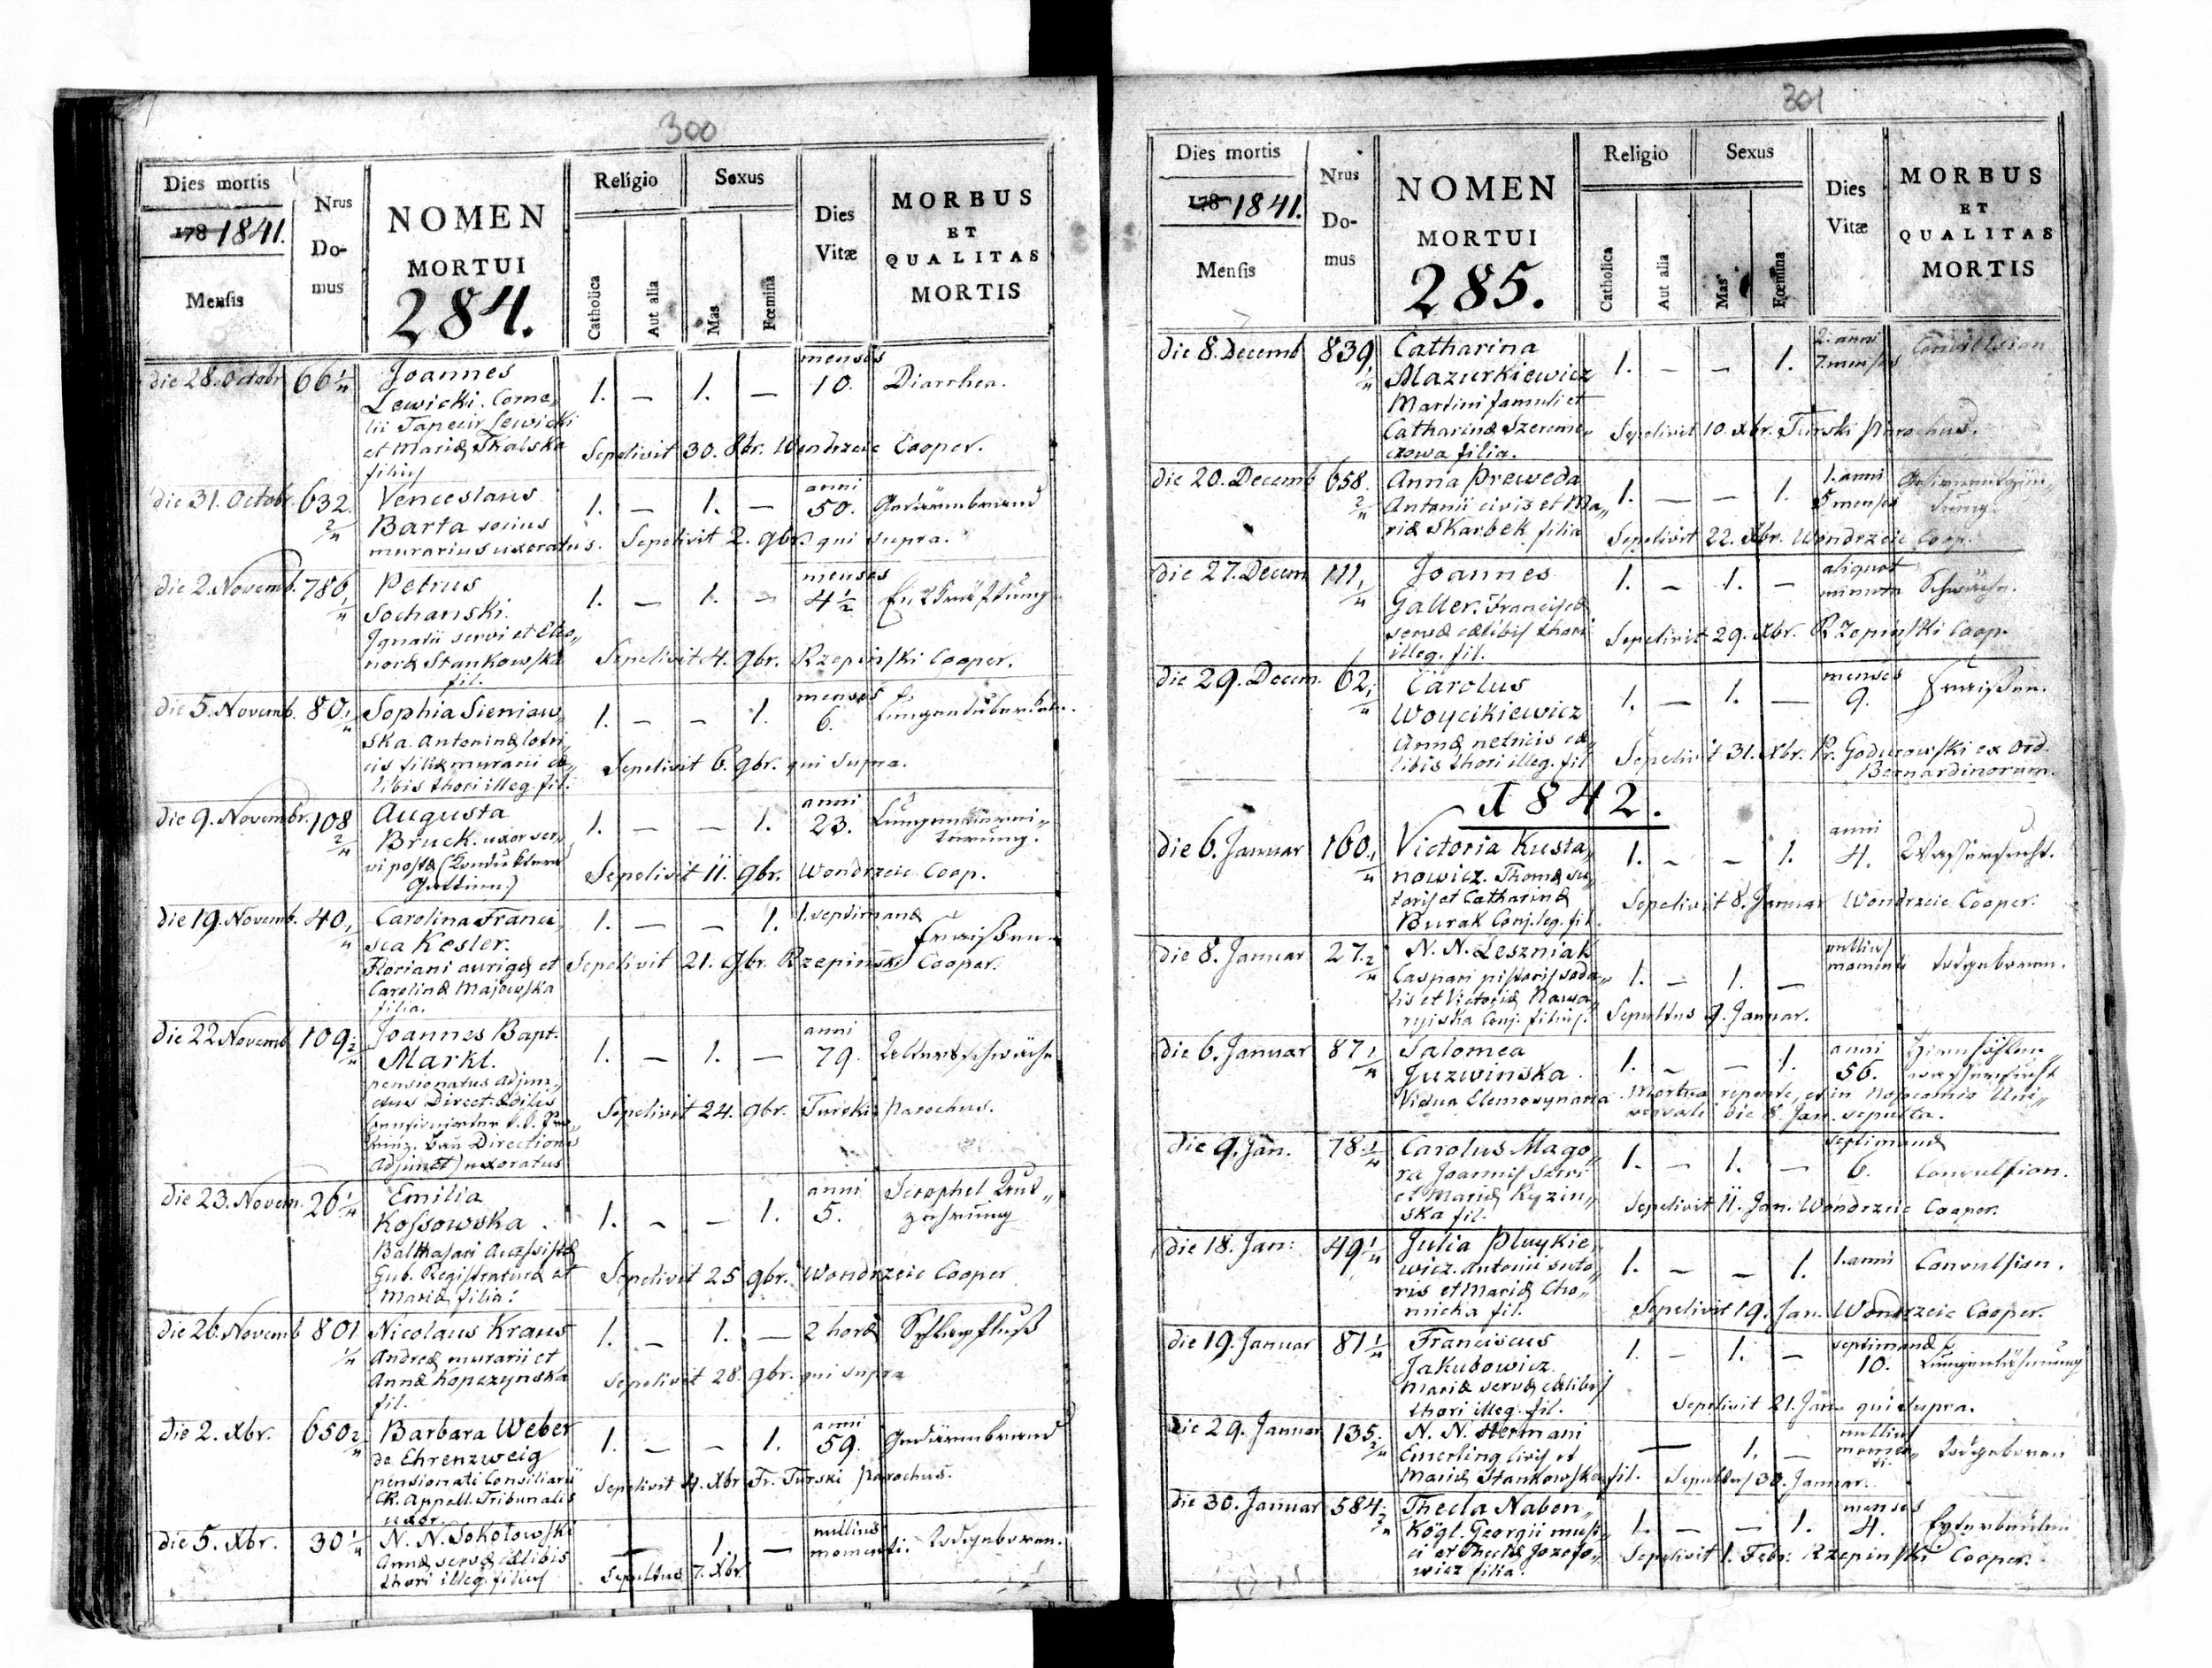 300
Dies mortis
178 1841.
Mensis
Nrus Domus
NOMEN
MORTUI
284.
Religio
Catholica
Aut alia
Sexus
Mas
Fœmina
Dies Vitæ
MORBUS
ET
QUALITAS
MORTIS
die 28. Octobr. 66 1/4 Joannes 1. — 1. — menses 10. Diarrhea.
Lewicki. Corne„
lii Lewicki
et Mariæ Skalska
filius
Sepelivit 30. 8br. Wondrzeic Cooper.
die 31. Octobr. 632. 2/4 Venceslaus 1. — 1. — anni 50. Gedärmbrand
Barta socius
murarius uxoratus. Sepelivit 2. 9br. qui supra.
die 2. Novemb. 786 1/4 Petrus 1. — 1. — menses 4½ Entkräftung
Sochanski.
Ignatii servi et Eleo„
noræ Stankowska
fil.
Sepelivit 4. 9br. Rzepinski Cooper.
die 5. Novemb. 80 1/4 Sophia Sieniaw„ 1. — — 1. menses 6.
ska. Antoninæ lotri„
cis filiæ murarii cæ„
libis thori illeg. fil.
Sepelivit 6. 9br. qui supra.
die 9. Novembr. 108 2/4 Augusta 1. — — 1. anni 23.
Bruck. uxor ser„
vi postæ (Kondukteurs
Gattinn.)
Sepelivit 11. 9br. Wondrzeic Coop.
die 19. Novemb. 40 1/4 Carolina Franci„ 1. — — 1. 1. septimanæ Fraißen.
sca Kesler.
Floriani aurigæ et
Carolinæ Majewska
filia.
Sepelivit 21. 9br. Rzepinski Cooper.
die 22 Novemb 109 2/4 Joannes Bapt. 1. — 1. — anni 79. Altersschwäche
Markl.
pensionatus adjun„
ctus Direct. ædilis
Directions
Adjunct) uxoratus
Sepelivit 24. 9br. Turski Parochus.
die 23. Novem. 26 1/4 Emilia 1. — — 1. anni 5. Scrophel Aus„
zehrung
Kossowska.
Balthasari Accessistæ
Gub. Registraturæ et
Mariæ filia.
Sepelivit 25 9br. Wondrzeic Cooper
die 26. Novemb 801 1/4 Nicolaus Kraus 1. — 1. — 2 horæ Schlagfluß
Andreæ murarii et
Annæ Kopczynska
fil.
Sepelivit 28. 9br. qui supra
die 2. Xbr. 650 2/4 Barbara Weber 1. — — 1. anni 59. Gedärmbrand
de Ehrenzweig
pensionati Consiliarii
CR. Appell. Tribunalis
uxor.
Sepelivit 4. Xbr Fr. Turski Parochus.
die 5. Xbr. 30 1/4 N. N. Sokołowski — 1. — nullius momenti. Todgeboren.
Annæ servæ cælibis
thori illeg. filius
Sepultus 7. Xbr
301
Dies mortis
178 1841.
Mensis
Nrus Domus
NOMEN
MORTUI
285.
Religio
Catholica
Aut alia
Sexus
Mas
Fœmina
Dies Vitæ
MORBUS
ET
QUALITAS
MORTIS
die 8. Decemb 839 1/4 Catharina 1. — — 1. 2. anni 7. menses Convulsion
Mazurkiewicz
Martini famuli et
Catharinæ Szereme„
czowa filia.
Sepelivit 10. Xbr. Turski Parochus.
die 20. Decemb 658. 2/4 Anna Preweda 1. — — 1. 1. anni 5 menses
Antonii civis et Ma„
riæ Skarbek filia
Sepelivit 22. Xbr. Wondrzeic Coop.
die 27. Decem 111 1/4 Joannes 1. — 1. — aliquot minuta Schwäche.
Galler. Franciscæ
servæ cælibis thori
illeg. fil.
Sepelivit 29. Xbr. Rzepinski Coop.
die 29. Decem. 62 1/4 Carolus 1. — 1. — menses 9. Fraißen.
Woycikiewicz
Annæ netricis cæ„
libis thori illeg. fil
Sepelivit 31. Xbr. Pr. Godurowski ex Ord.
Bernardinorum.
1842.
die 6. Januar 160 1/4 Victoria Kusta„ 1. — — 1. anni 4. Wassersucht.
nowicz. Thomæ su„
toris et Catharinæ
Burak Conj. leg. fil.
Sepelivit 8. Januar Wondrzeic Cooper.
die 8. Januar 27 2/4 N. N. Leszniak 1. — 1. — nullius momenti Todgeboren.
Caspari pistoris soda„
lis et Victoriæ Nawa„
ryiska Conj. filius.
Sepultus 9. Januar.
die 6. Januar 87 1/4 Salomea 1. — — 1. anni 56. Hirnhöhlen„
wassersucht
Juzwinska.
Vidua Elemosynaria Mortua repente, et in Nosocomio Uni„
versali die 8. Jan. sepulta.
die 9. Jan. 78 1/4 Carolus Mago„ 1. — 1. — septimanæ 6. Convulsion.
ra Joannis servi
et Mariæ Ryzin„
ska fil.
Sepelivit 11. Jan. Wondrzeic Cooper.
die 18. Jan: 49 1/4 Julia Pluykie„ 1. — — 1. 1. anni Convulsion.
wicz. Antonii suto„
ris et Mariæ Cho„
micka fil.
Sepelivit 19. Jan. Wondrzeic Cooper.
die 19. Januar 81 1/4 Franciscus 1. — 1. — septimanæ 10. Lungenlähmung
Jakubowicz.
Mariæ servæ cælibis
thori illeg. fil.
Sepelivit 21. Jan. qui supra.
die 29. Januar 135. 2/4 N. N. Hermani — 1. — nullius momen„ti. Todgeboren
Emerling civis et
Mariæ Stankowska fil. Sepultus 30. Januar.
die 30. Januar 584 2/4 Thecla Naben„ 1. — — 1. menses 4.
kögl. Georgii musi„
ci et Theclæ Jozefo„
wicz filia.
Sepelivit 1. Febr. Rzepinski Cooper.